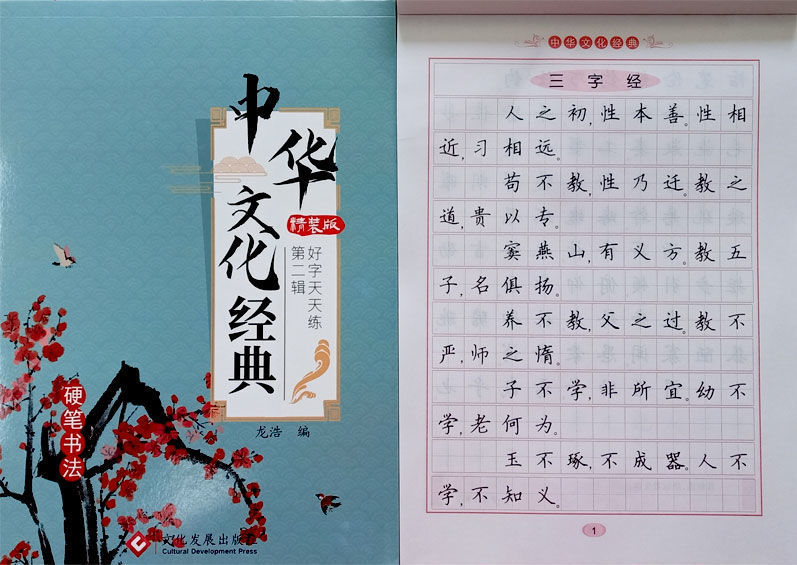 中华
文化经典
精装版
好字天天练
第二辑
硬笔书法
龙浩 编
文化发展出版社
Cultural Development Press
中华文化经典
三字经
人之初,性本善。性相
近,习相远。
苟不教,性乃迁。教之
道,贵以专。
窦燕山,有义方。教五
子,名俱扬。
养不教,父之过。教不
严,师之惰。
子不学,非所宜。幼不
学,老何为。
玉不琢,不成器。人不
学,不知义。
1